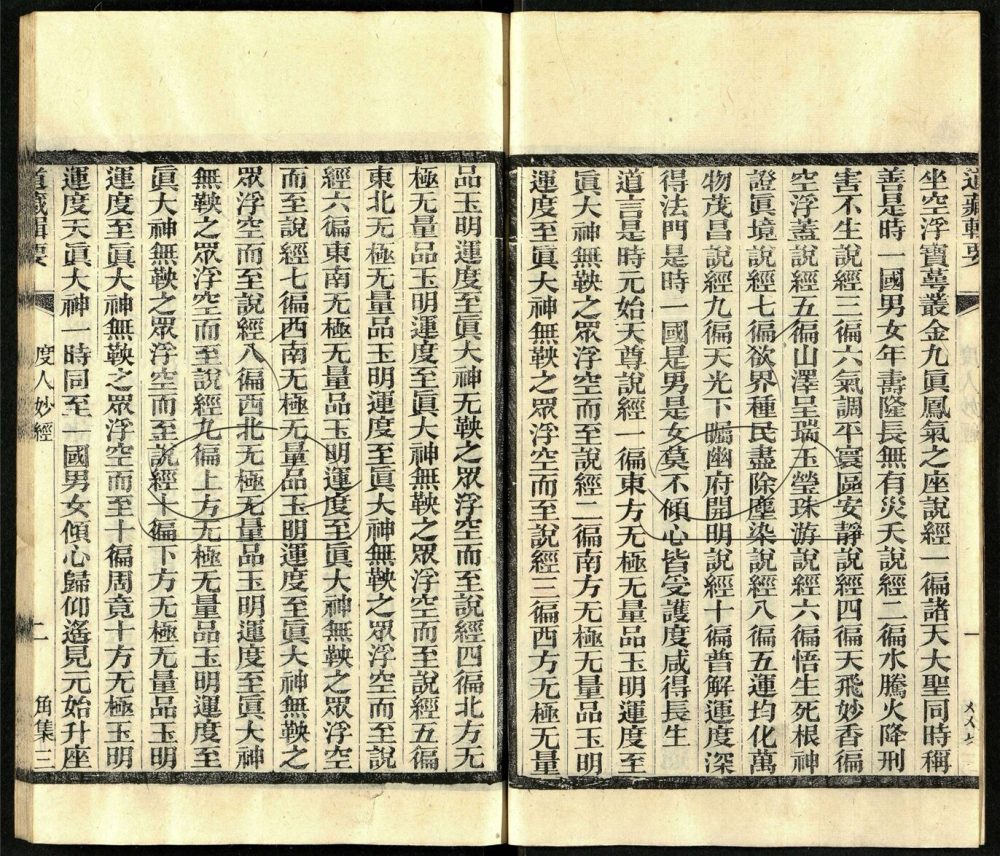 道藏輯要
坐空浮寶蕚叢金九眞鳳氣之座說經一徧諸天大聖同時稱
善是時一國男女年壽隆長無有災夭說經二徧水騰火降刑
害不生說經三徧六氣調平寰區安靜說經四徧天飛妙香徧
空浮蓋說經五徧山澤呈瑞玉瑩珠游說經六徧悟生死根神
證眞境說經七徧欲界種民盡除塵染說經八徧五運均化萬
物茂昌說經九徧天光下矚幽府開明說經十徧普解運度深
得法門是時一國是男是女莫不傾心皆受護度咸得長生
道言是時元始天尊說經一徧東方无極无量品玉明運度至
眞大神無鞅之眾浮空而至說經二徧南方无極无量品玉明
運度至眞大神無鞅之眾浮空而至說經三徧西方无極无量
品玉明運度至眞大神无鞅之眾浮空而至說經四徧北方无
極无量品玉明運度至眞大神無鞅之眾浮空而至說經五徧
東北无極无量品玉明運度至眞大神無鞅之眾浮空而至說
經六徧東南无極无量品玉明運度至眞大神無鞅之眾浮空
而至說經七徧西南无極无量品玉明運度至眞大神無鞅之
眾浮空而至說經八徧西北无極无量品玉明運度至眞大神
無鞅之眾浮空而至說經九徧上方无極无量品玉明運度至
眞大神無鞅之眾浮空而至說經十徧下方无極无量品玉明
運度至眞大神無鞅之眾浮空而至十徧周竟十方无極玉明
運度天眞大神一時同至一國男女傾心歸仰遙見元始升座
道藏輯要 度人妙經 二 角集三